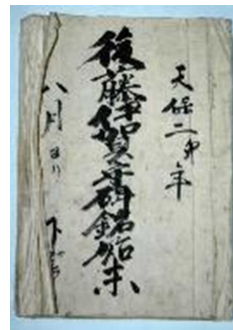 天保二卯年
後藤伊賀守碑銘始末
八月より